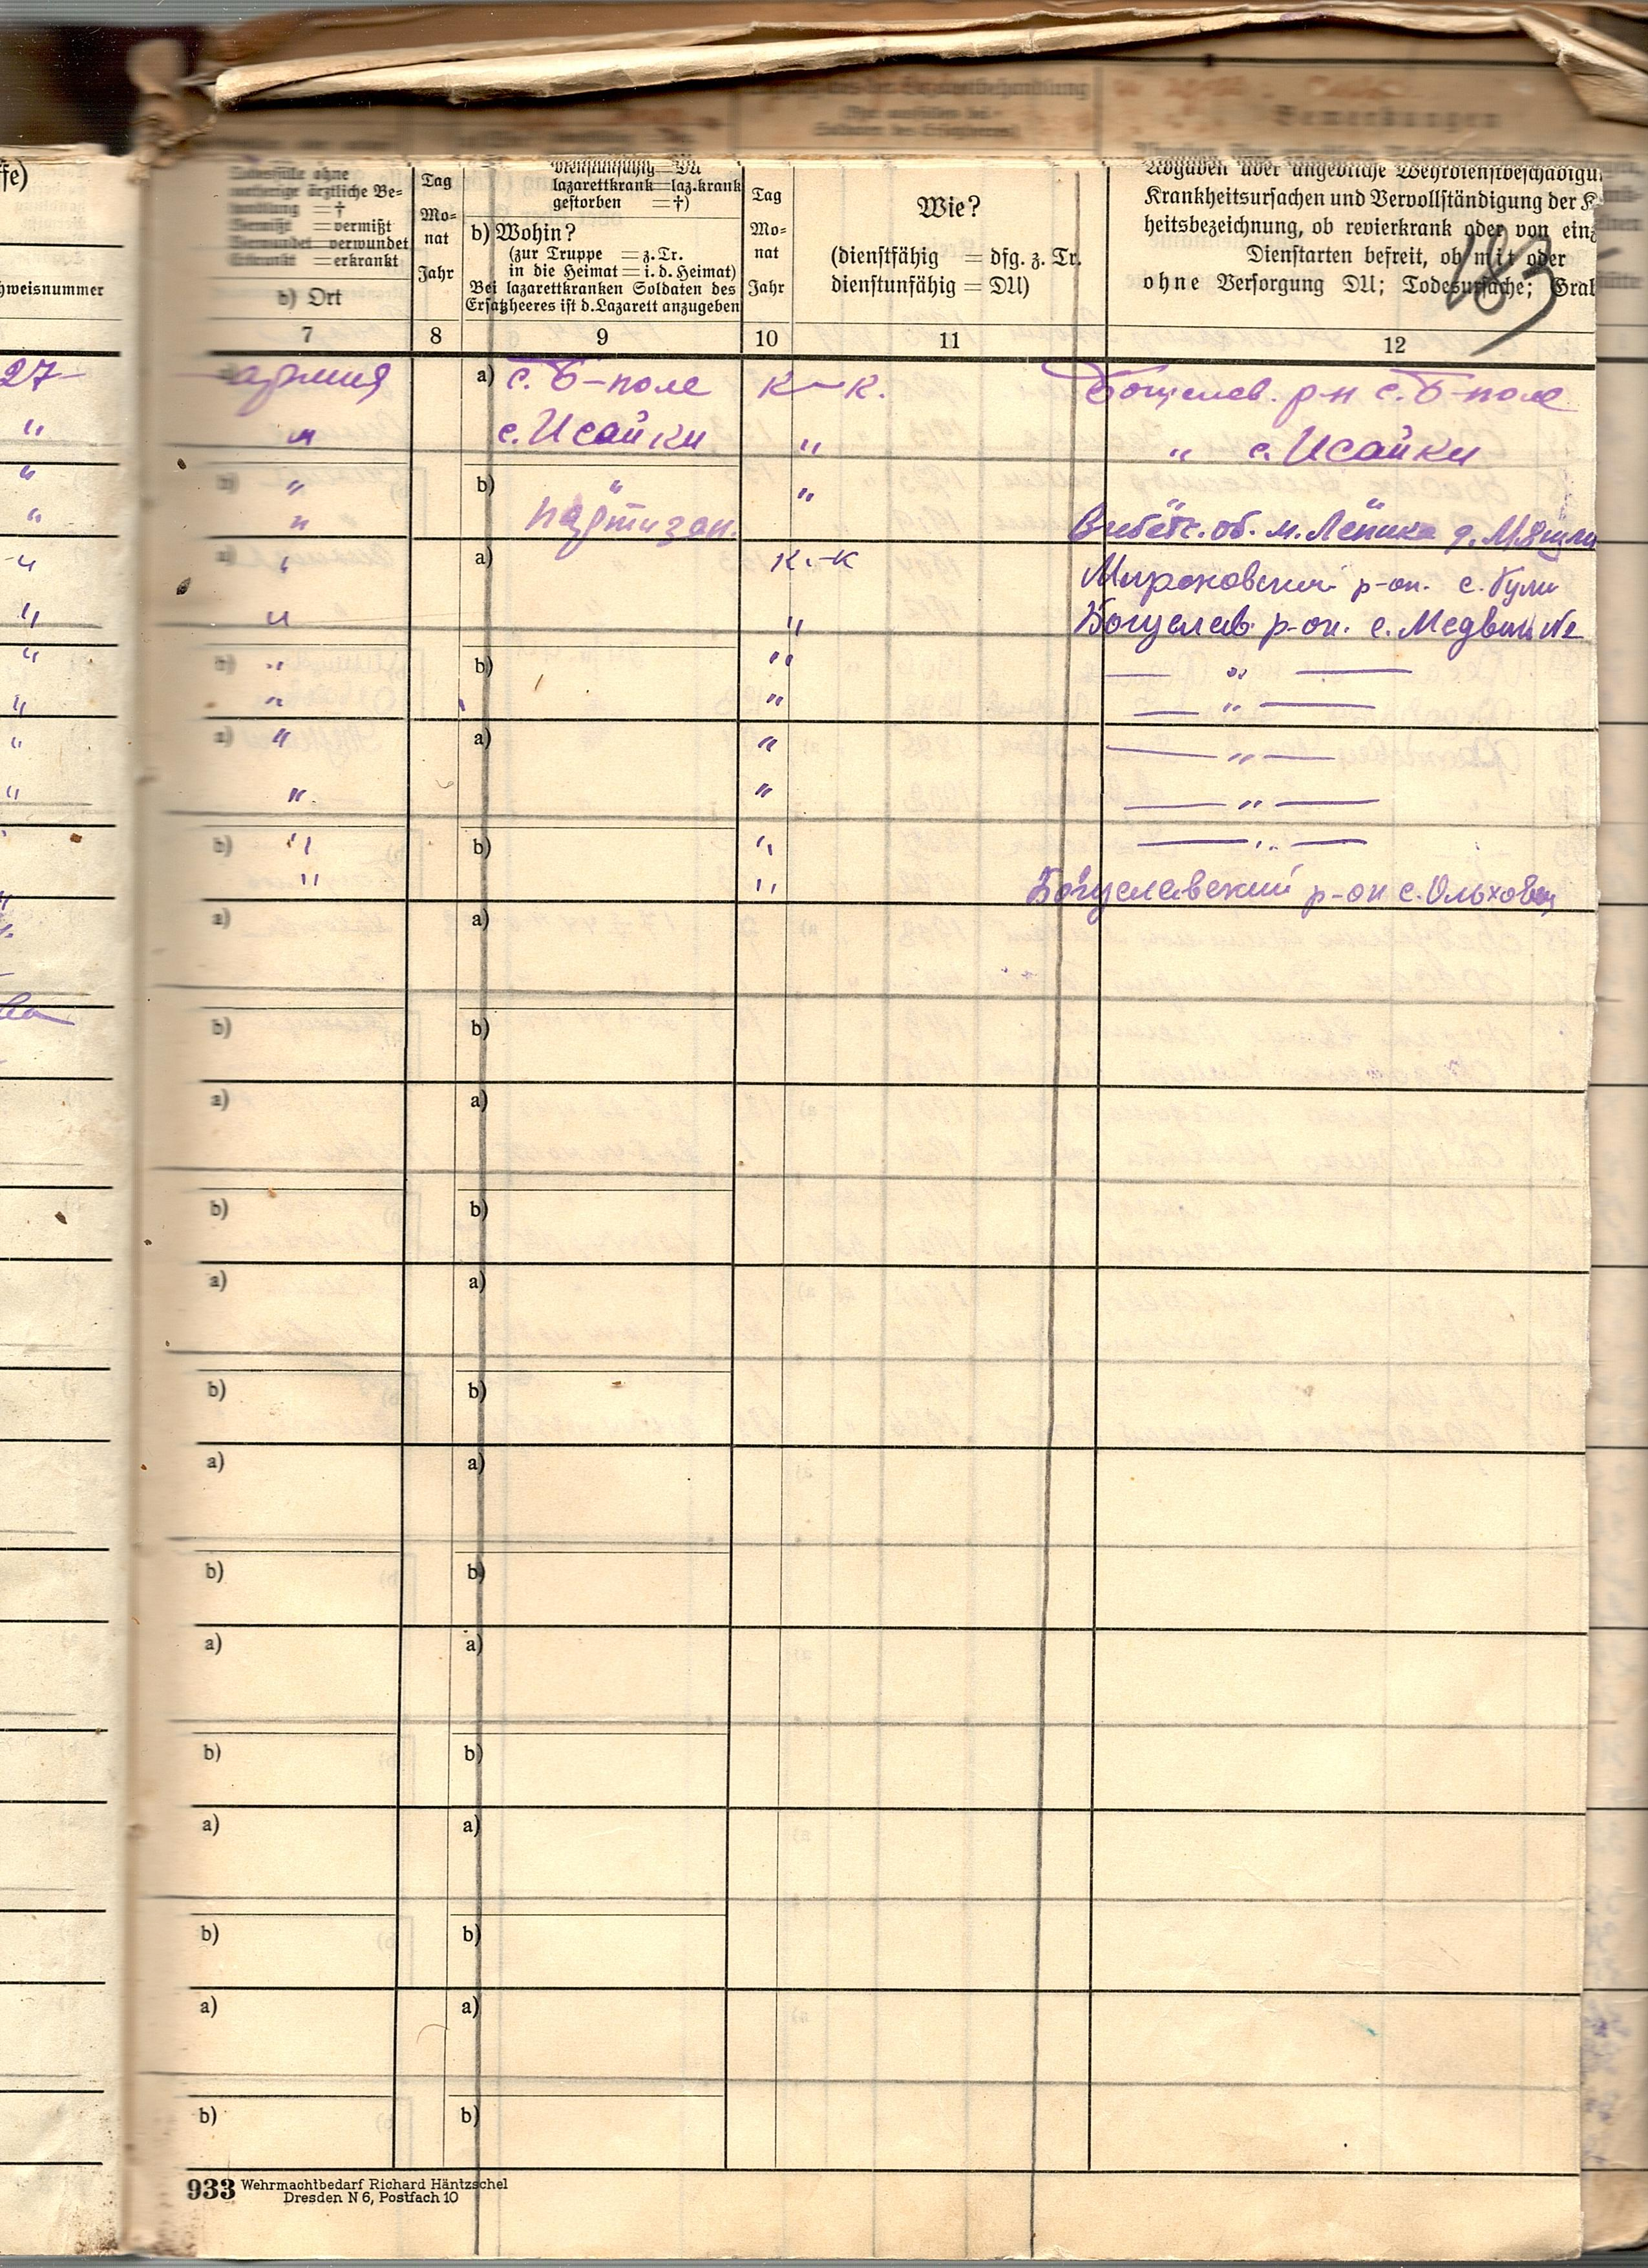 ffe)
hweisnummer
27-
Todesfälle ohne
vorherige ärztliche Be=
handlung =†
Vermißt =vermißt
Verwundet=verwundet
Erkrankt =erkrankt
b) Ort
Tag
Mo=
nat
Jahr
dienstunfähig=DU
lazarettkrank=laz.krank
gestorben =†)
b) Wohin?
(zur Truppe =z.Tr.
in die Heimat=i.d.Heimat)
Bei lazarettkranken Soldaten des
Ersatzheeres ist d.Lazarett anzugeben
Tag
Mo=
nat
Jahr
Wie?
(dienstfähig = dfg. z. Tr.
dienstunfähig = DU)
Angaben über angebliche Wehrdienstbeschädigu
Krankheitsursachen und Vervollständigung der K
heitsbezeichnung, ob revierkrank oder von einz
Dienstarten befreit, ob mit oder
ohne Versorgung DU; Todesursache; Gral
183
7 8 9 10 11 12
армия a) с. Б-поле к-к. Богуслав. р-н с. Б-поле
" " с. Исайки " " с. Исайки
" b) " b) " "
" " партизан. Витебс. об. м. Лепика д.
a) " a) к.-к Мироновский р-он. с. Гули
" " " Богуслав. р-он. с. Медвин №
" b) " b) " — " —
" " " — " —
" a) " a) " — " —
" " " — " —
b) " b) " — " —
" " Богуславский р-он с. Ольховец
a) a)
b) b)
a) a)
b) b)
a) a)
b) b)
a) a)
b) b)
a) a)
b) b)
a) a)
b) b)
a) a)
b) b)
933 Wehrmachtbedarf Richard Häntzschel
Dresden N 6, Postfach 10